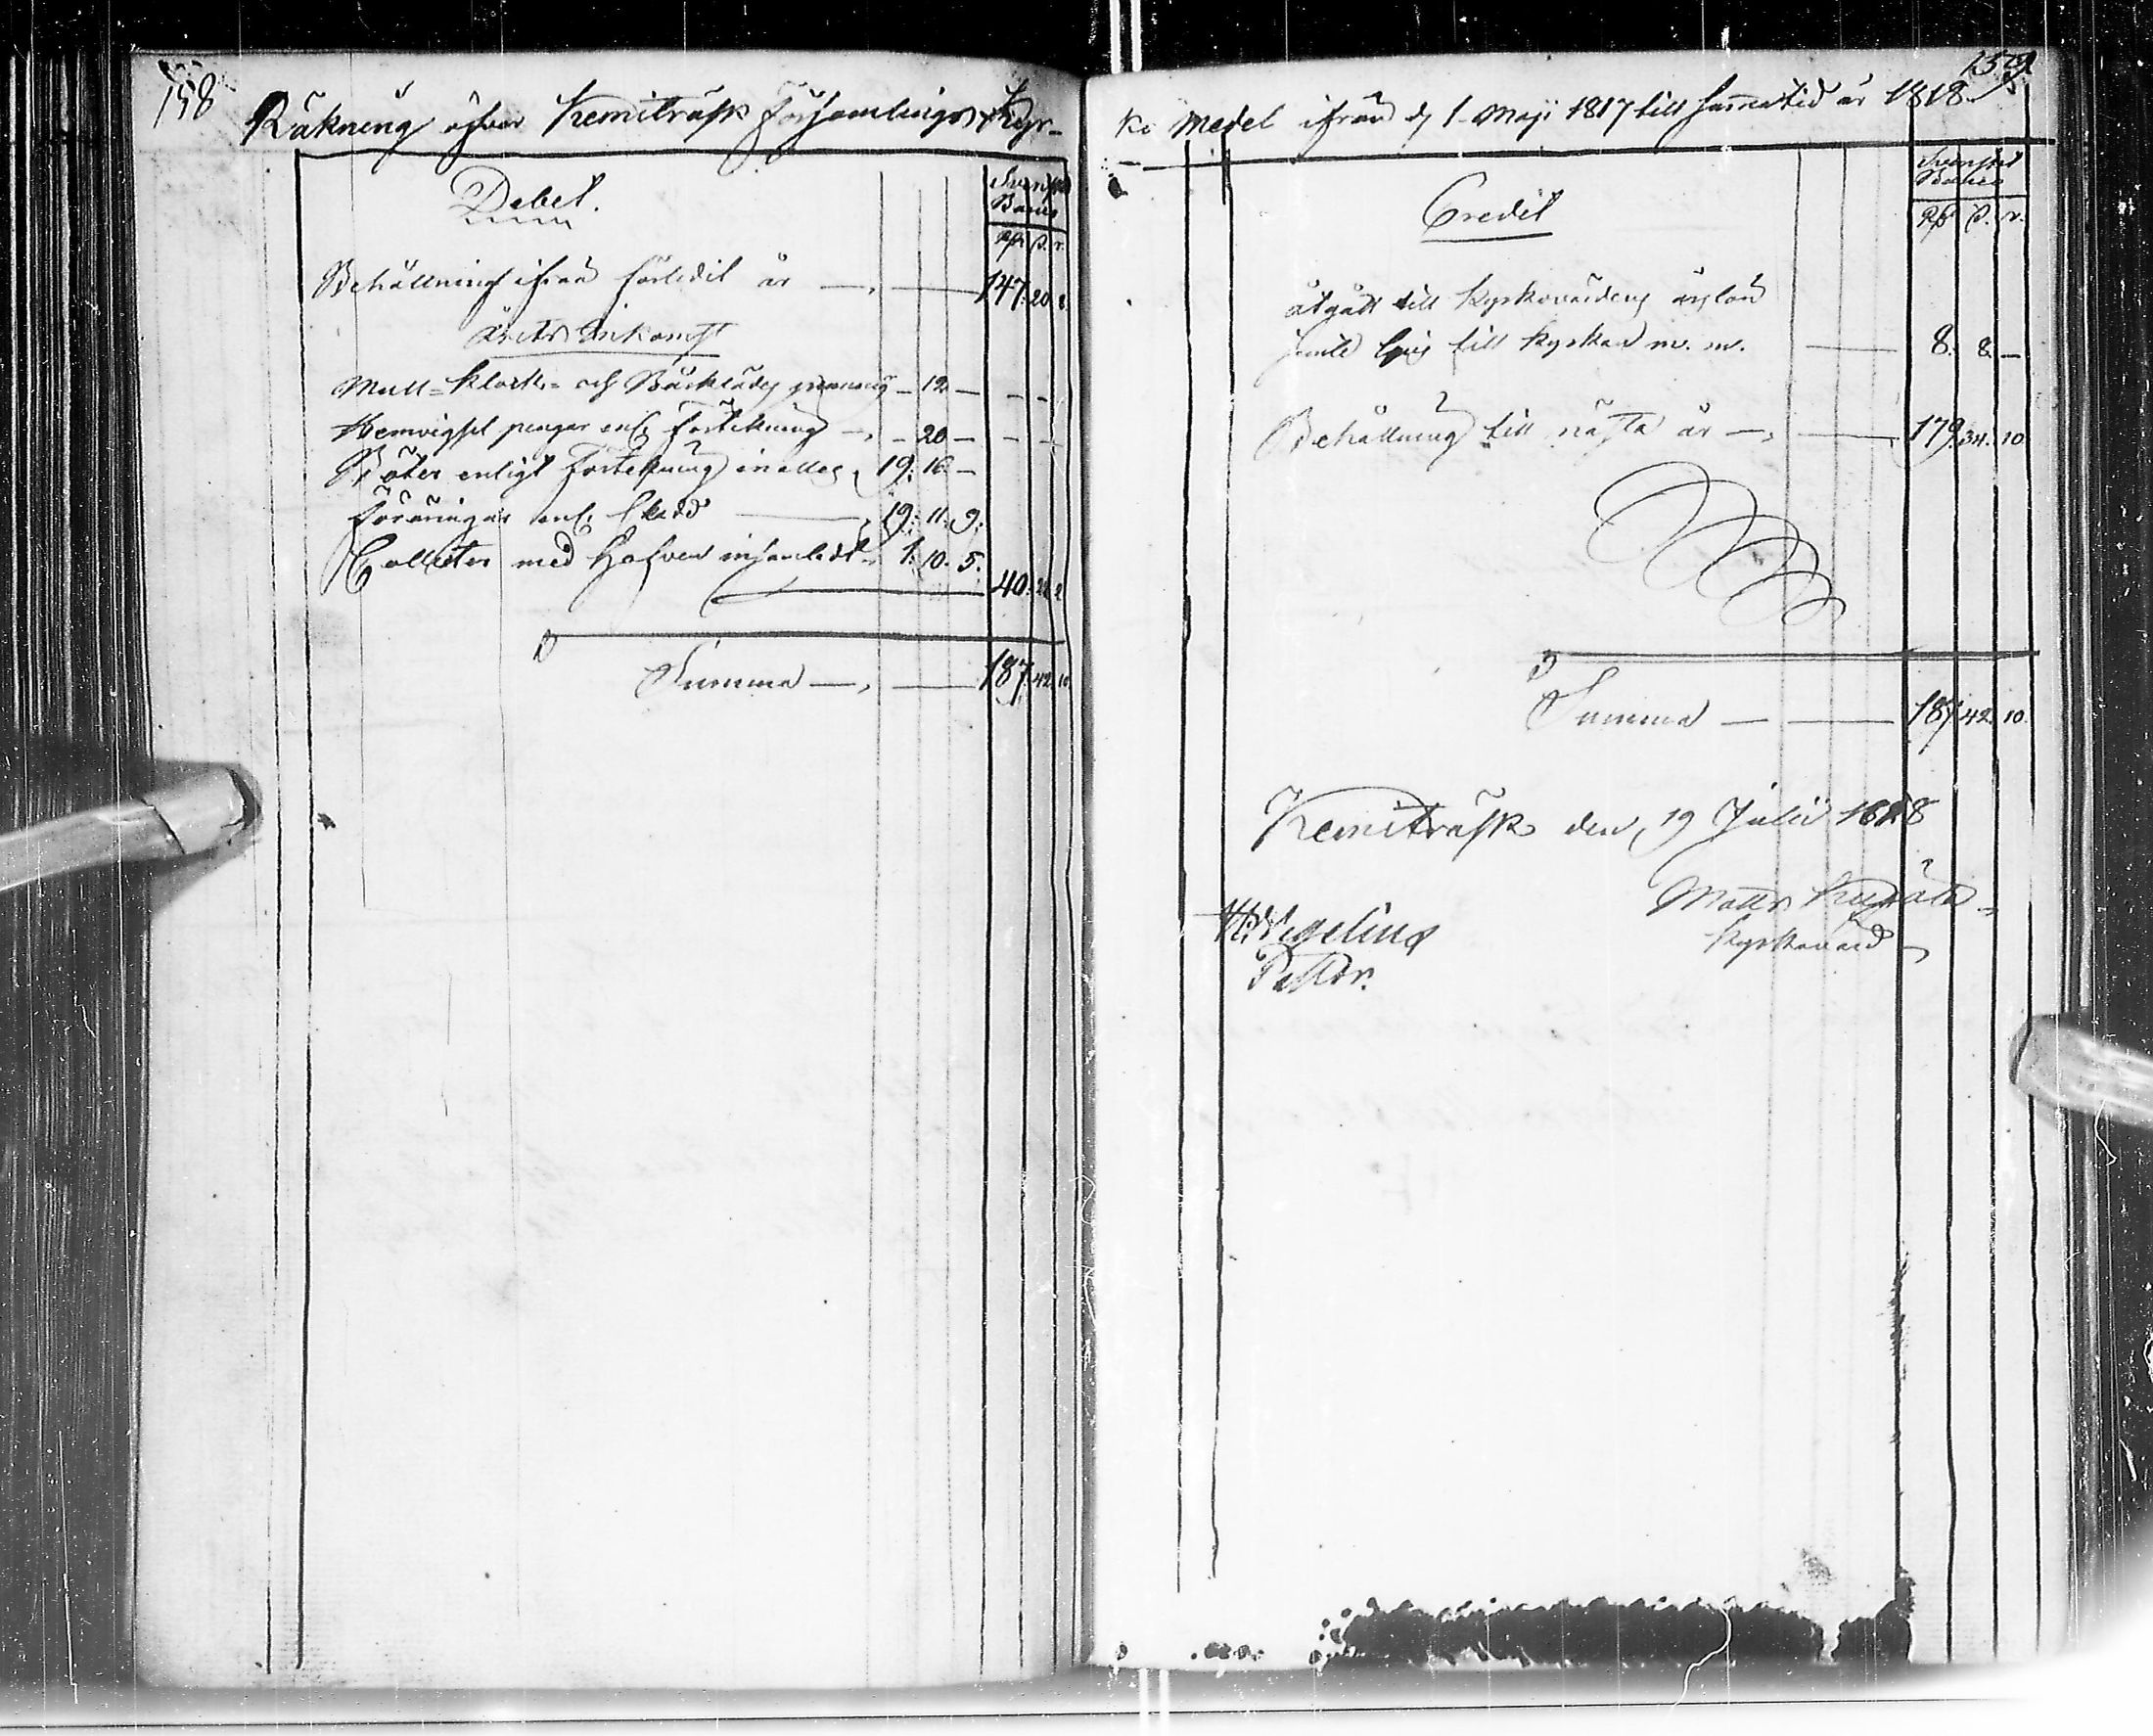 158
Räkning öfver Kemiträsk Församlings Kyr-
Debet.
Svenskt
Banco
Rd s. r.
Behållning ifrån förledit år — 147. 20. 8.
Årets Inkomst
Mull- Klock- och Bårklädes penning — 12 —
Hemvigsel pengar enl. Förtekning — 20 —
Böter enligt Förtekning in alles 19. 16. —
Föräringar enl. 19: 11. 9:
Collecter med Hofven insamladt 1: 10. 5.
40: 22 2
Summa — 187. 42. 10.
159
ko Medel ifrån d. 1 Maji 1817 till samma tid år 1818.
Svenskt
Banco
Credit
Rd s. r.
åtgått till Kyrkovärdens årslön
jemte till Kyrkan m. m. — 8. 8. —
Behållning till nästa år — 179. 34. 10
Summa — 187. 42. 10.
Kemiträsk den 19 Julii 1818
Matts
Kyrkovärd
Wegelius
Pastor.